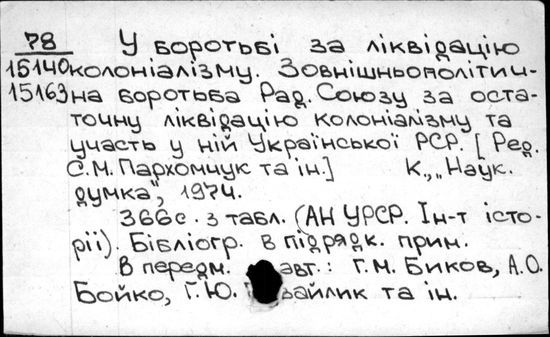 78 У боротьбі за ліквідацію
15140 колоніалізму. Зовнішньополітич-
15163 на боротьба Рад. Союзу за оста-
точну ліквідацію колоніалізму та
участь у ній Української РСР. [Ред.
С.М. Пархомчук та ін.] К., „Наук.
думка", 1974.
366с. з табл. (АН УРСР. Ін-т істо-
рії). Бібліогр. в підрядк. прим.
В передм. авт.: Г.М. Биков, А.О.
Бойко, Г.Ю. та ін.